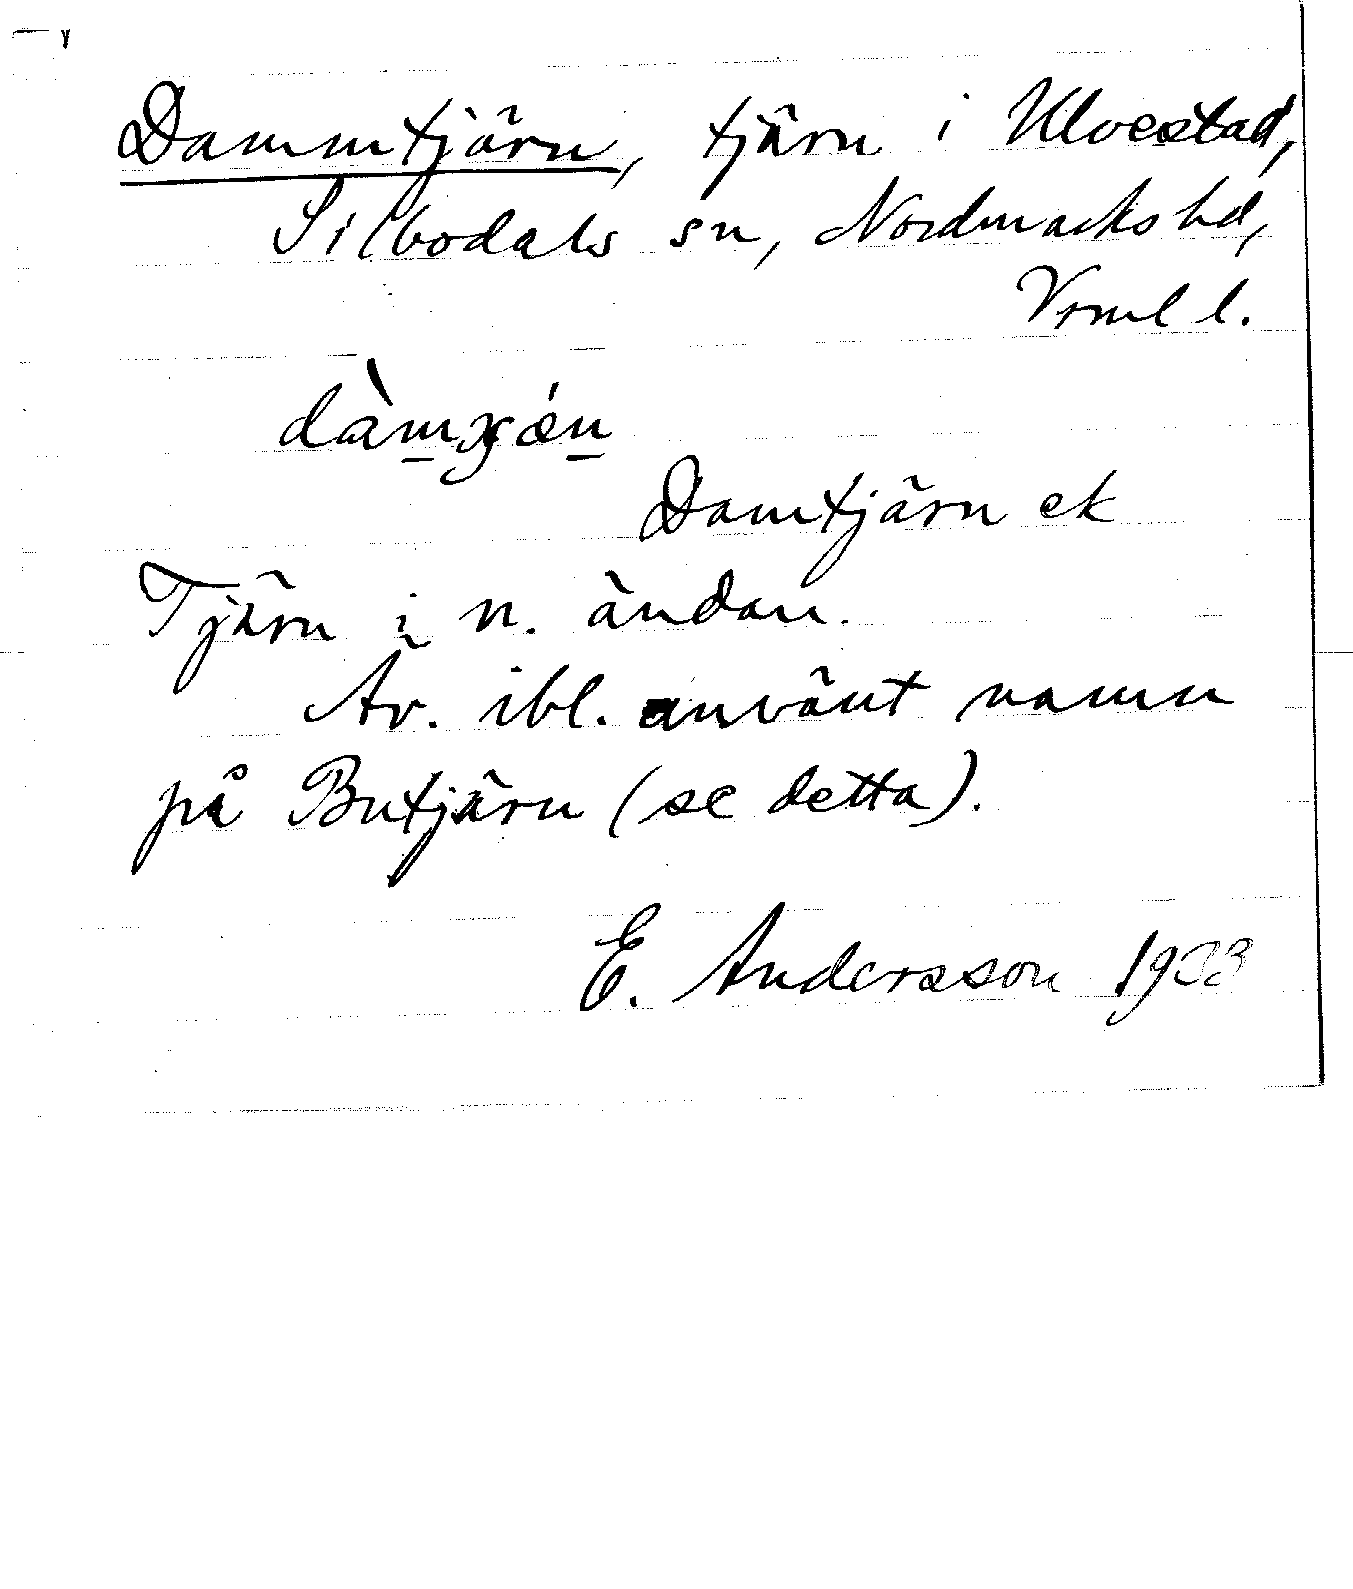 Dammtjärn, tjärn i Ulvestad,
Silbodals sn, Nordmarks hd,
Vrml l.
Damtjärn ek
Tjärn i n. ändan.
Äv. ibl. använt namn
på Butjärn (se detta).
E. Andersson 1933